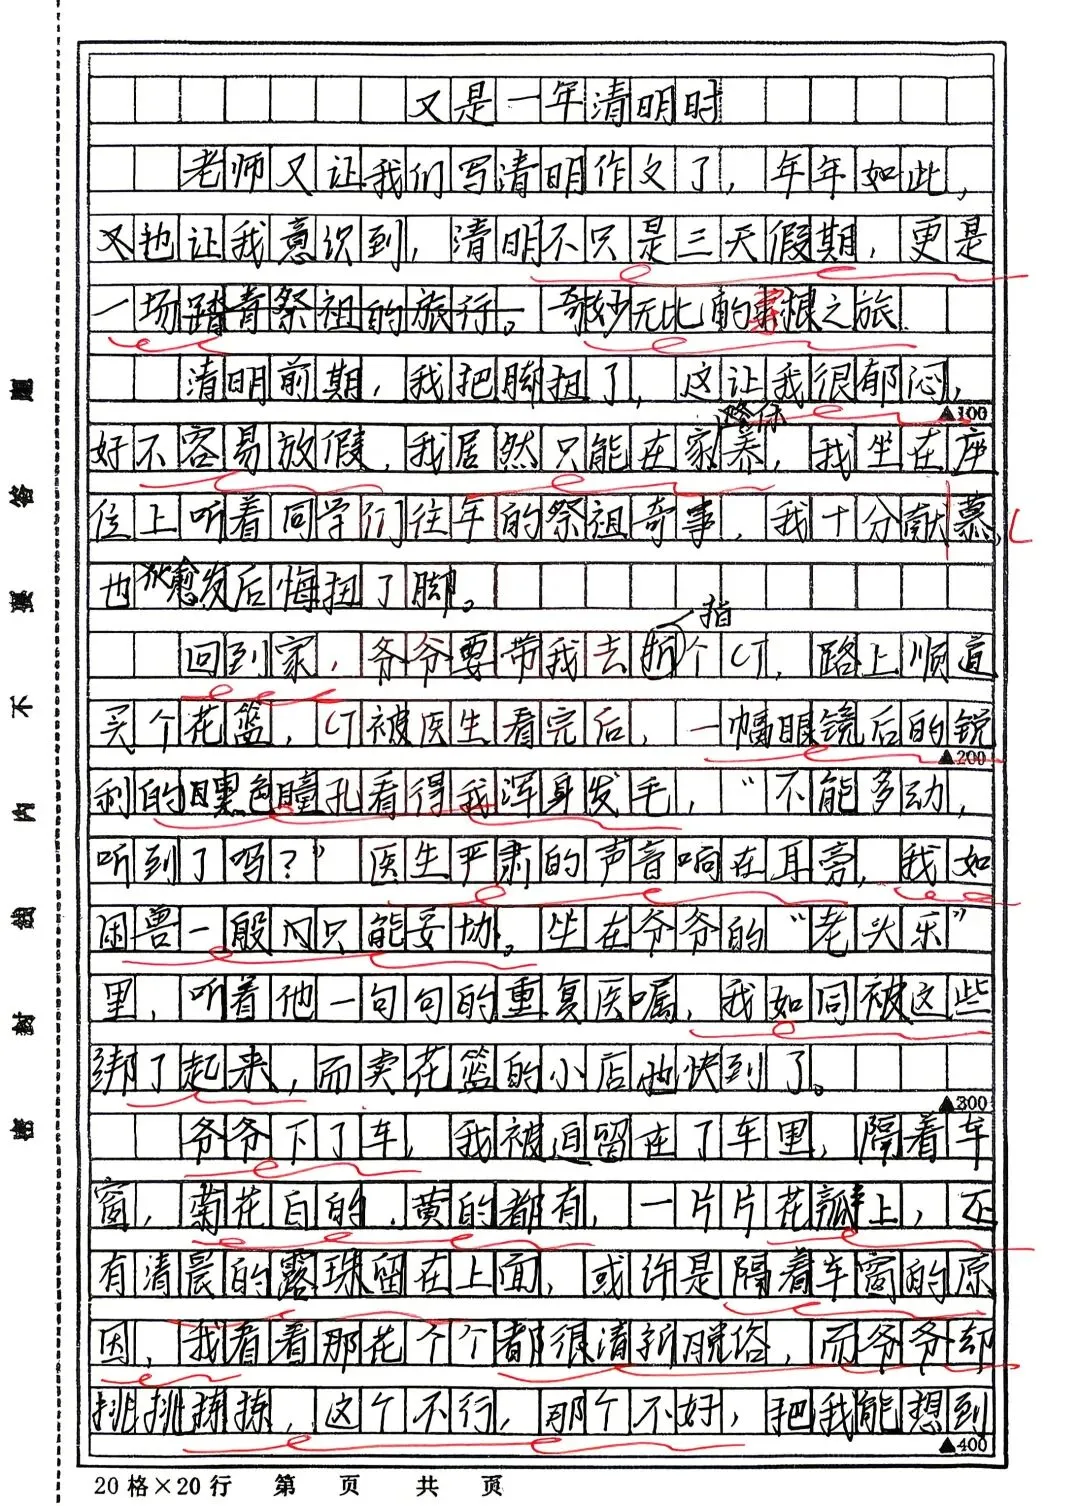 又是一年清明时
老师又让我们写清明作文了，年年如此，
又也让我意识到，清明不只是三天假期，更是
一场踏青祭祖的旅行。奇妙无比的之旅
清明前期，我把脚扭了，这让我很郁闷，
▲100
好不容易放假，我居然只能在家养，我坐在座
位上听着同学们往年的祭祖奇事，我十分献慕，
也愈发后悔扭了脚。
指
回到家，爷爷要带我去拆个CT，路上顺道
买个花篮，CT被医生看完后，一幅眼镜后的锐
▲200
利的黑色瞳孔看得我浑身发毛，“不能多动，
听到了吗？”医生严肃的声音响在耳旁，我如
困兽一般只能妥协。坐在爷爷的“老头乐”
里，听着他一句句的重复医嘱，我如同被这些
绑了起来，而卖花篮的小店也快到了。
▲300
爷爷下了车，我被迫留在了车里，隔着车
窗，菊花白的，黄的都有，一片片花瓣上，还
有清晨的露珠留在上面，或许是隔着车窗的原
因，我看着那花个个都很清新脱俗，而爷爷却
挑挑拣拣，这个不行，那个不好，把我能想到
▲400
20格×20行 第 页 共 页
密 封 线 内 不 要 答 题